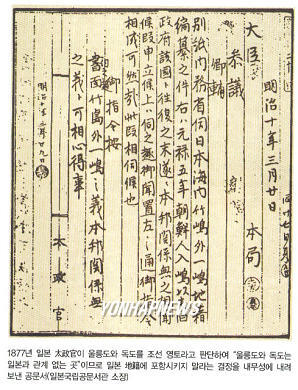 明治十年三月廿日
大臣
本局
参議
卿輔
別紙内務省伺日本海内竹嶋外一嶋地籍
編纂之件右ハ元禄五年朝鮮人入嶋以来旧
政府該国ト往復之末遂ニ本邦関係無之相聞
候段申立候上ハ伺之趣御聞置左之通御指令
相成可然哉此段相伺候也
御指令按
書面竹島外一嶋之義本邦関係無
之義ト可相心得事
明治十年三月廿九日
太政官
YONHAPNEWS
1877년 일본 太政官이 울릉도와 독도를 조선 영토라고 판단하여 "울릉도와 독도는
일본과 관계 없는 곳"이므로 일본 地籍에 포함시키지 말라는 결정을 내무성에 내려
보낸 공문서(일본국립공문서관 소장)